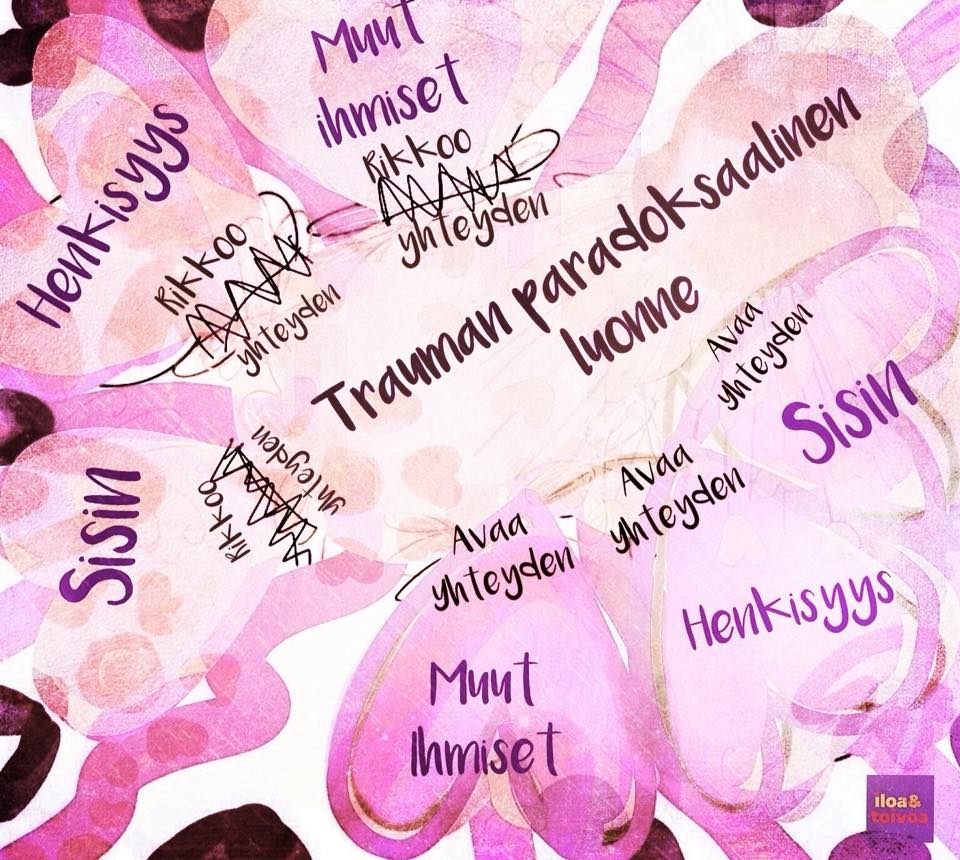 Muut
ihmiset
Rikkoo
yhteyden
Henkisyys
Rikkoo
yhteyden
Trauman paradoksaalinen
luonne
Sisin
Rikkoo
yhteyden
Avaa
yhteyden
Sisin
Avaa
yhteyden
Henkisyys
Avaa
yhteyden
Muut
Ihmiset
iloa&
toivoa